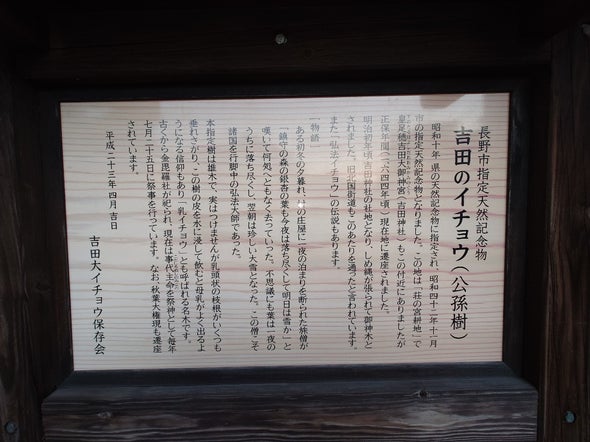 長野市指定天然記念物
吉田のイチョウ(公孫樹)
昭和十年 県の天然記念物に指定され、昭和四十二年十一月
市の指定天然記念物となりました。この地は「荘の宮耕地」で
皇足穂吉田大御神宮(吉田神社)もこの付近にありましたが
正保年間(一六四四年頃)現在地に遷座されました。
明治初年頃吉田神社の社地となり、しめ縄が張られて御神木と
されました。旧北国街道もこのあたりを通ったと言われています。
また「弘法イチョウ」の伝説もあります。
「物語」
ある初冬の夕暮れ、村の庄屋に一夜の泊まりを断られた旅僧が
「鎮守の森の銀杏の葉も今夜は落ち尽くして明日は雪か」と
嘆いて何処へともなく去っていった。不思議にも葉は一夜の
うちに落ち尽くし、翌朝は珍しい大雪となった。この僧こそ
諸国を行脚中の弘法大師であった。
本指定樹は雄木で、実はつけませんが乳頭状の枝根がいくつも
垂れさがり、この樹の皮を水に浸して飲むと母乳がよく出るよ
うになる信仰もあり「乳イチョウ」とも呼ばれる名木です。
古くから金毘羅社が祀られ、現在は事代主命を祭神として毎年
七月二十五日に祭事を行っています。なお、秋葉大権現も遷座
されています。
平成二十三年四月吉日
吉田大イチョウ保存会